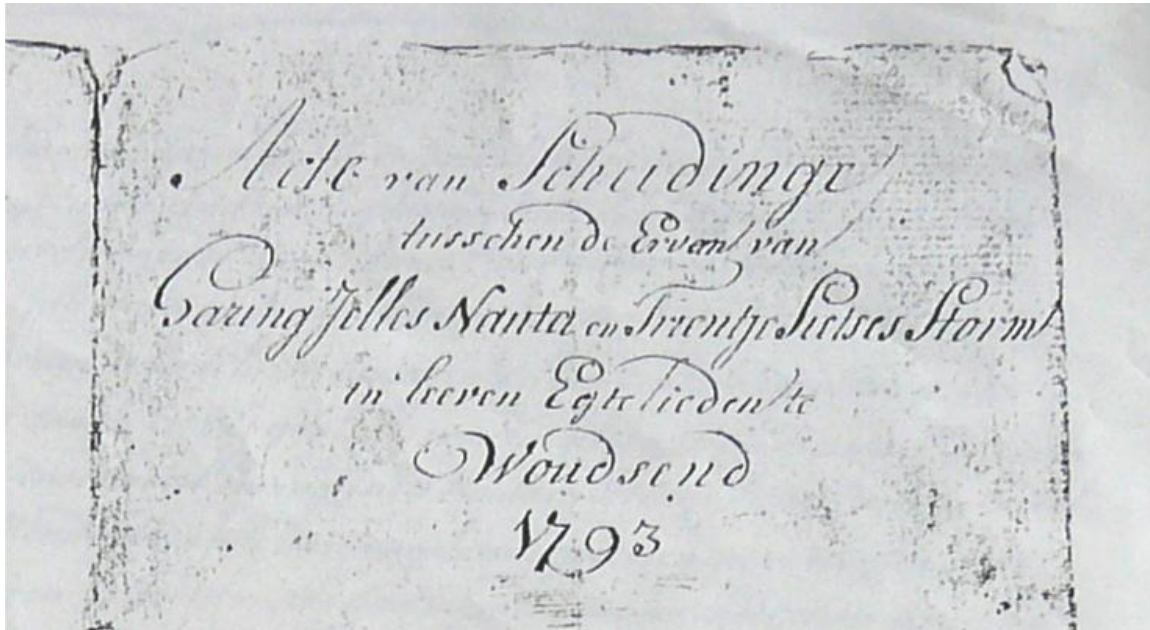 Acte van Scheidinge
tusschen de Ervan van
Garing Jelles Nauta en Trientje Sietses Storm
in leeven Egtelieden te
Woudsend
1793